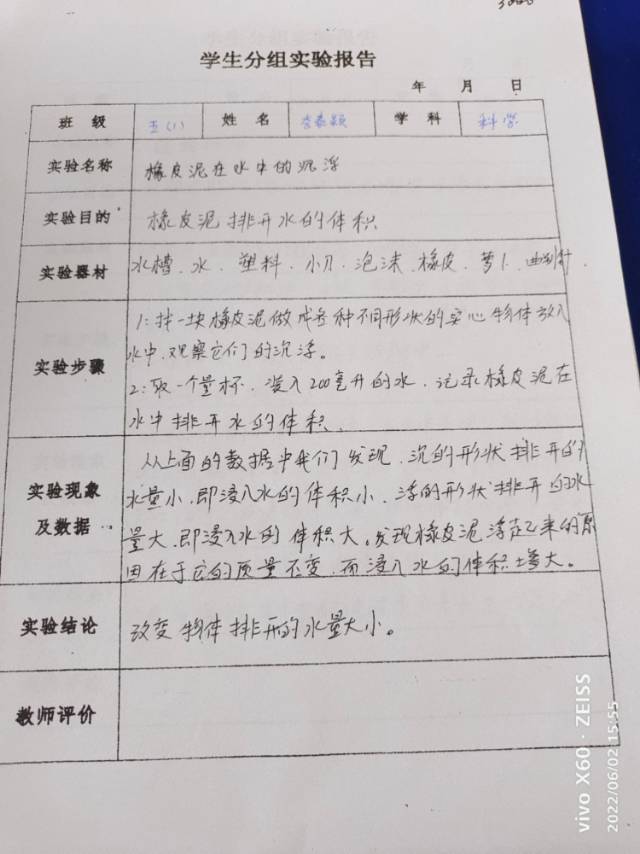 学生分组实验报告
年 月 日
班级 五(1) 姓名 学科 科学
实验名称 橡皮泥在水中的沉浮
实验目的 橡皮泥排开水的体积
实验器材 水槽、水、塑料、小刀、泡沫、橡皮、萝卜、曲别针
1:找一块橡皮泥做成各种不同形状的实心物体放入
水中,观察它们的沉浮。
实验步骤
2:取一个量杯,装入200毫升的水,记录橡皮泥在
水中排开水的体积.
从上面的数据中我们发现,沉的形状排开的
实验现象 水量小,即浸入水的体积小,浮的形状排开的水
及数据 量大,即浸入水的体积大。发现橡皮泥浮起来的原
因在于它的质量不变,而浸入水的体积增大。
实验结论 改变物体排开的水量大小。
教师评价
vivo X60 · ZEISS
2022/06/02 15:55